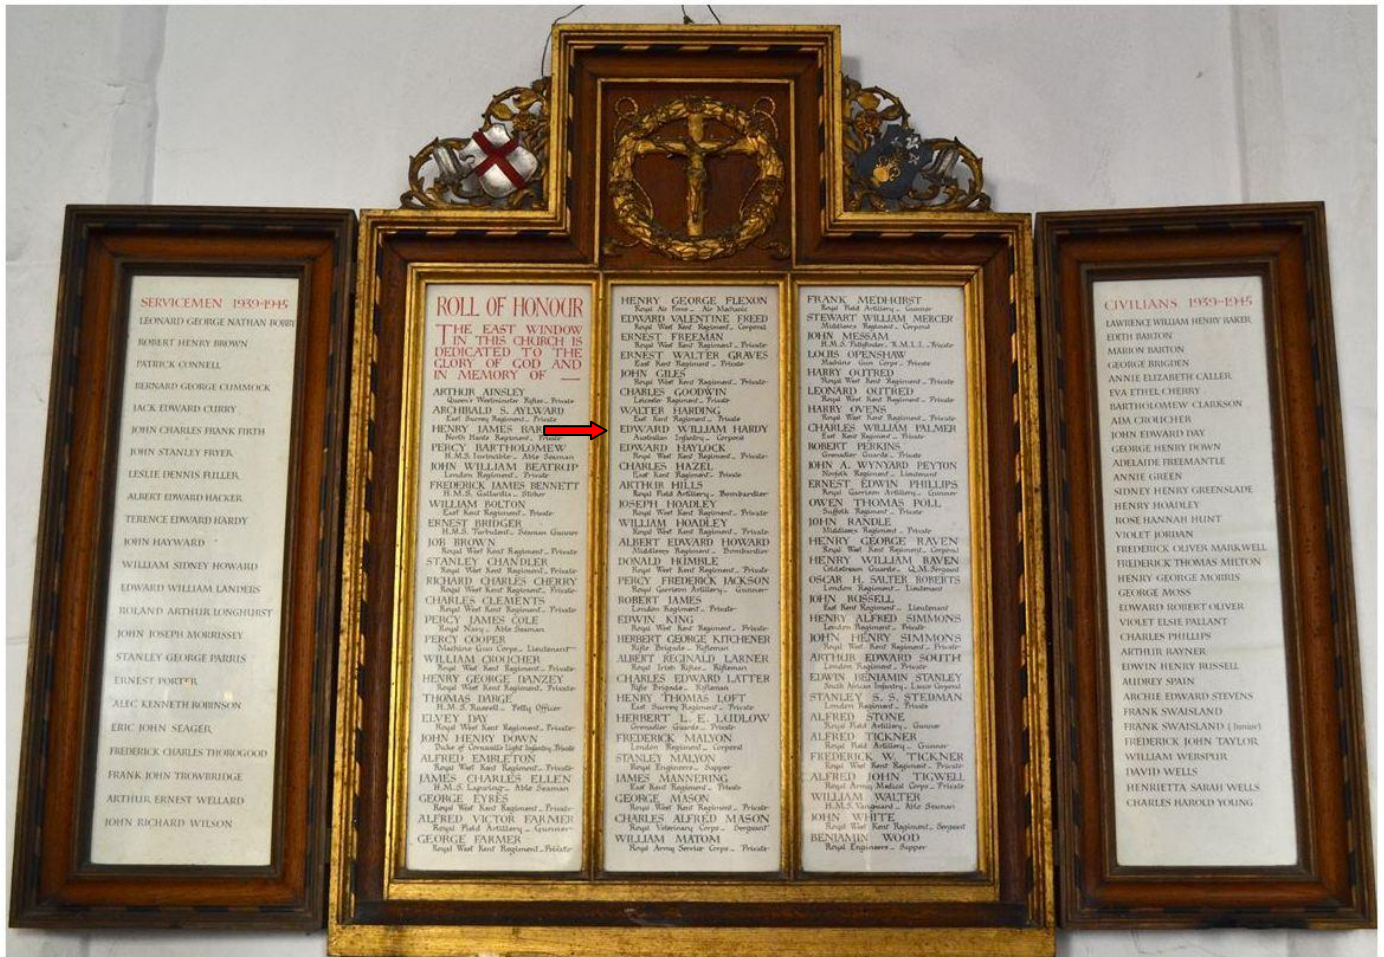 SERVICEMEN 1939-1945
LEONARD GEORGE NATHAN BOBBY
ROBERT HENRY BROWN
PATRICK CONNELL
BERNARD GEORGE CUMMOCK
JACK EDWARD CURRY
JOHN CHARLES FRANK FIRTH
JOHN STANLEY FRYER
LESLIE DENNIS FULLER
ALBERT EDWARD HACKER
TERENCE EDWARD HARDY
JOHN HAYWARD
WILLIAM SIDNEY HOWARD
EDWARD WILLIAM LANDERS
ROLAND ARTHUR LONGHURST
JOHN JOSEPH MORRISSEY
STANLEY GEORGE PARRIS
ERNEST PORTER
ALEC KENNETH ROBINSON
ERIC JOHN SEAGER
FREDERICK CHARLES THOROGOOD
FRANK JOHN TROWBRIDGE
ARTHUR ERNEST WELLARD
JOHN RICHARD WILSON
ROLL OF HONOUR
THE EAST WINDOW
IN THIS CHURCH IS
DEDICATED TO THE
GLORY OF GOD AND
IN MEMORY OF —
ARTHUR AINSLEY
Queen's Westminster Rifles_ Private
ARCHIBALD S. AYLWARD
East Surrey Regiment_ Private
HENRY JAMES
North Hants Regiment_ Private
PERCY BARTHOLOMEW
H.M.S. Invincible_ Able Seaman
JOHN WILLIAM BEATRUP
London Regiment_ Private
FREDERICK JAMES BENNETT
H.M.S. Gallardia_ Stoker
WILLIAM BOLTON
East Kent Regiment_ Private
ERNEST BRIDGER
H.M.S. Turbulent_ Seaman Gunner
JOB BROWN
Royal West Kent Regiment_ Private
STANLEY CHANDLER
Royal West Kent Regiment_ Private
RICHARD CHARLES CHERRY
Royal West Kent Regiment_ Private
CHARLES CLEMENTS
Royal West Kent Regiment_ Private
PERCY JAMES COLE
Royal Navy_ Able Seaman
PERCY COOPER
Machine Gun Corps_ Lieutenant
WILLIAM CROUCHER
Royal West Kent Regiment_ Private
HENRY GEORGE DANZEY
Royal West Kent Regiment_ Private
THOMAS DARGE
H.M.S. Russell_ Petty Officer
ELVEY DAY
Royal West Kent Regiment_ Private
JOHN HENRY DOWN
Duke of Cornwalls Light Infantry_ Private
ALFRED EMBLETON
Royal West Kent Regiment_ Private
JAMES CHARLES ELLEN
H.M.S. Lapwing_ Able Seaman
GEORGE EYRES
Royal West Kent Regiment_ Private
ALFRED VICTOR FARMER
Royal Field Artillery_ Gunner
GEORGE FARMER
Royal West Kent Regiment_ Private
HENRY GEORGE FLEXON
Royal Air Force_ Air Mechanic
EDWARD VALENTINE FREED
Royal West Kent Regiment_ Corporal
ERNEST FREEMAN
Royal West Kent Regiment_ Private
ERNEST WALTER GRAVES
East Kent Regiment_ Private
JOHN GILES
Royal West Kent Regiment_ Private
CHARLES GOODWIN
Leicester Regiment_ Private
WALTER HARDING
East Kent Regiment_ Private
EDWARD WILLIAM HARDY
Australian Infantry_ Corporal
EDWARD HAYLOCK
Royal West Kent Regiment_ Private
CHARLES HAZEL
East Kent Regiment_ Private
ARTHUR HILLS
Royal Field Artillery_ Bombardier
JOSEPH HOADLEY
Royal West Kent Regiment_ Private
WILLIAM HOADLEY
Royal West Kent Regiment_ Private
ALBERT EDWARD HOWARD
Middlesex Regiment_ Bombardier
DONALD HUMBLE
Royal West Kent Regiment_ Private
PERCY FREDERICK JACKSON
Royal Garrison Artillery_ Gunner
ROBERT JAMES
London Regiment_ Private
EDWIN KING
Royal West Kent Regiment_ Private
HERBERT GEORGE KITCHENER
Rifle Brigade_ Rifleman
ALBERT REGINALD LARNER
Royal Irish Rifles_ Rifleman
CHARLES EDWARD LATTER
Rifle Brigade_ Rifleman
HENRY THOMAS LOFT
East Surrey Regiment_ Private
HERBERT L. E. LUDLOW
Grenadier Guards_ Private
FREDERICK MALYON
London Regiment_ Corporal
STANLEY MALYON
Royal Engineers_ Sapper
JAMES MANNERING
East Kent Regiment_ Private
GEORGE MASON
Royal West Kent Regiment_ Private
CHARLES ALFRED MASON
Royal Veterinary Corps_ Sergeant
WILLIAM MATOM
Royal Army Service Corps_ Private
FRANK MEDHURST
Royal Field Artillery_ Gunner
STEWART WILLIAM MERCER
Middlesex Regiment_ Corporal
JOHN MESSAM
H.M.S. Pathfinder_ R.M.L.I._ Private
LOUIS OPENSHAW
Machine Gun Corps_ Private
HARRY OUTRED
Royal West Kent Regiment_ Private
LEONARD OUTRED
Royal West Kent Regiment_ Private
HARRY OVENS
Royal West Kent Regiment_ Private
CHARLES WILLIAM PALMER
East Kent Regiment_ Private
ROBERT PERKINS
Grenadier Guards_ Private
JOHN A. WYNYARD PEYTON
Norfolk Regiment_ Lieutenant
ERNEST EDWIN PHILLIPS
Royal Garrison Artillery_ Gunner
OWEN THOMAS POLL
Suffolk Regiment_ Private
JOHN RANDLE
Middlesex Regiment_ Private
HENRY GEORGE RAVEN
Royal West Kent Regiment_ Corporal
HENRY WILLIAM RAVEN
Coldstream Guards_ Q.M. Sergeant
OSCAR H. SALTER ROBERTS
London Regiment_ Lieutenant
JOHN RUSSELL
East Kent Regiment_ Lieutenant
HENRY ALFRED SIMMONS
London Regiment_ Private
JOHN HENRY SIMMONS
Royal West Kent Regiment_ Private
ARTHUR EDWARD SOUTH
London Regiment_ Private
EDWIN BENJAMIN STANLEY
South African Infantry_ Lance Corporal
STANLEY S. S. STEDMAN
London Regiment_ Private
ALFRED STONE
Royal Field Artillery_ Gunner
ALFRED TICKNER
Royal Field Artillery_ Gunner
FREDERICK W. TICKNER
Royal West Kent Regiment_ Private
ALFRED JOHN TIGWELL
Royal Army Medical Corps_ Private
WILLIAM WALTER
H.M.S. Vanguard_ Able Seaman
JOHN WHITE
Royal West Kent Regiment_ Sergeant
BENJAMIN WOOD
Royal Engineers_ Sapper
CIVILIANS 1939-1945
LAWRENCE WILLIAM HENRY BAKER
EDITH BARTON
MARION BARTON
GEORGE BRIGDEN
ANNIE ELIZABETH CALLER
EVA ETHEL CHERRY
BARTHOLOMEW CLARKSON
ADA CROUCHER
JOHN EDWARD DAY
GEORGE HENRY DOWN
ADELAIDE FREEMANTLE
ANNIE GREEN
SIDNEY HENRY GREENSLADE
HENRY HOADLEY
ROSE HANNAH HUNT
VIOLET JORDAN
FREDERICK OLIVER MARKWELL
FREDERICK THOMAS MILTON
HENRY GEORGE MORRIS
GEORGE MOSS
EDWARD ROBERT OLIVER
VIOLET ELSIE PALLANT
CHARLES PHILLIPS
ARTHUR RAYNER
EDWIN HENRY RUSSELL
AUDREY SPAIN
ARCHIE EDWARD STEVENS
FRANK SWAISLAND
FRANK SWAISLAND (Junior)
FREDERICK JOHN TAYLOR
WILLIAM WEBSPUR
DAVID WELLS
HENRIETTA SARAH WELLS
CHARLES HAROLD YOUNG